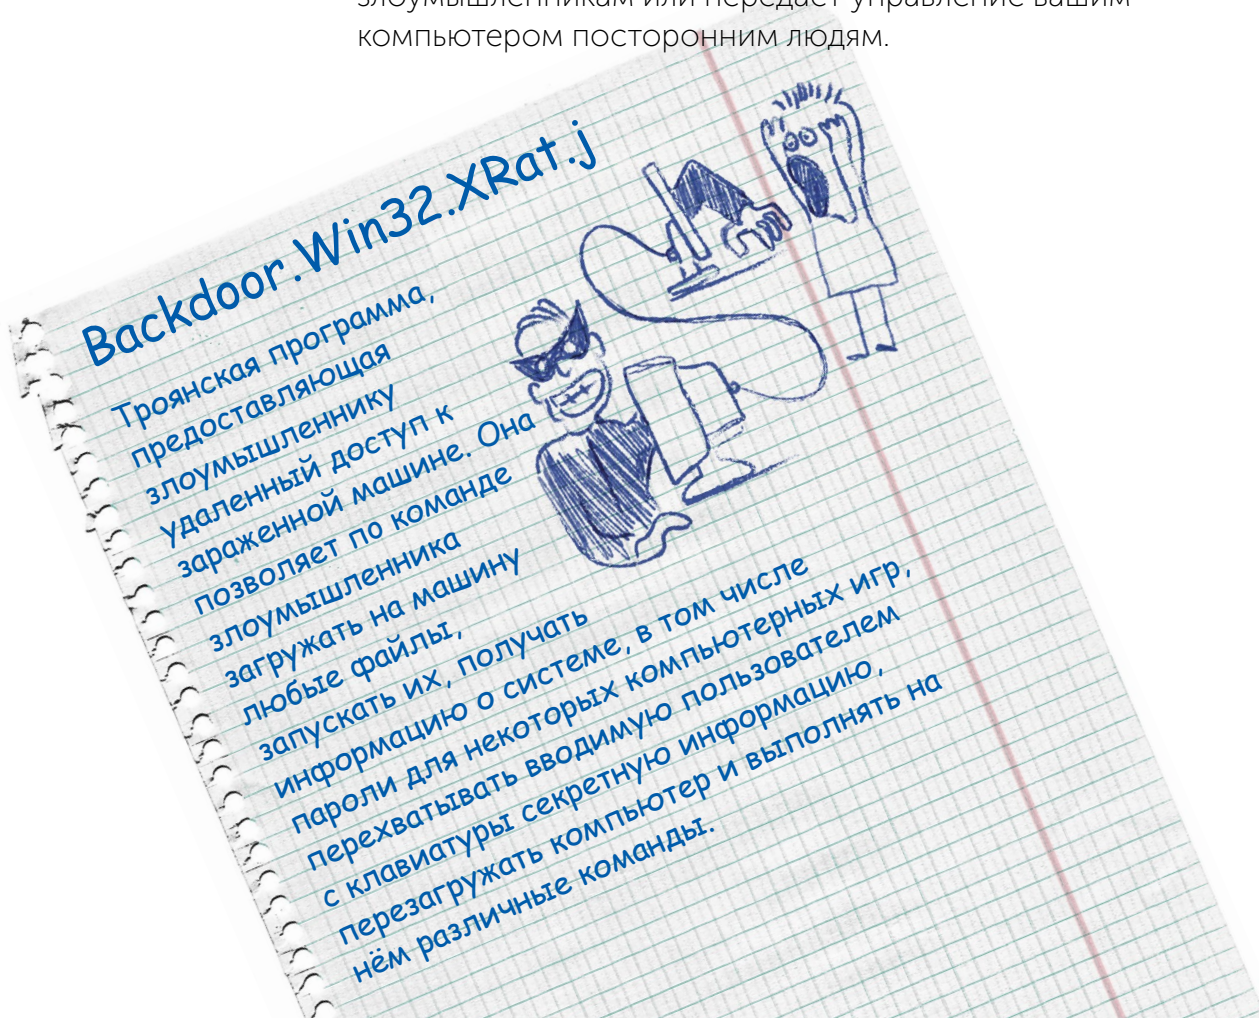 злоумышленникам или передаёт управление вашим
компьютером посторонним людям.
Backdoor.Win32.XRat.j
Троянская программа,
предоставляющая
злоумышленнику
удаленный доступ к
зараженной машине. Она
позволяет по команде
злоумышленника
загружать на машину
любые файлы,
запускать их, получать
информацию о системе, в том числе
пароли для некоторых компьютерных игр,
перехватывать вводимую пользователем
с клавиатуры секретную информацию,
перезагружать компьютер и выполнять на
нём различные команды.